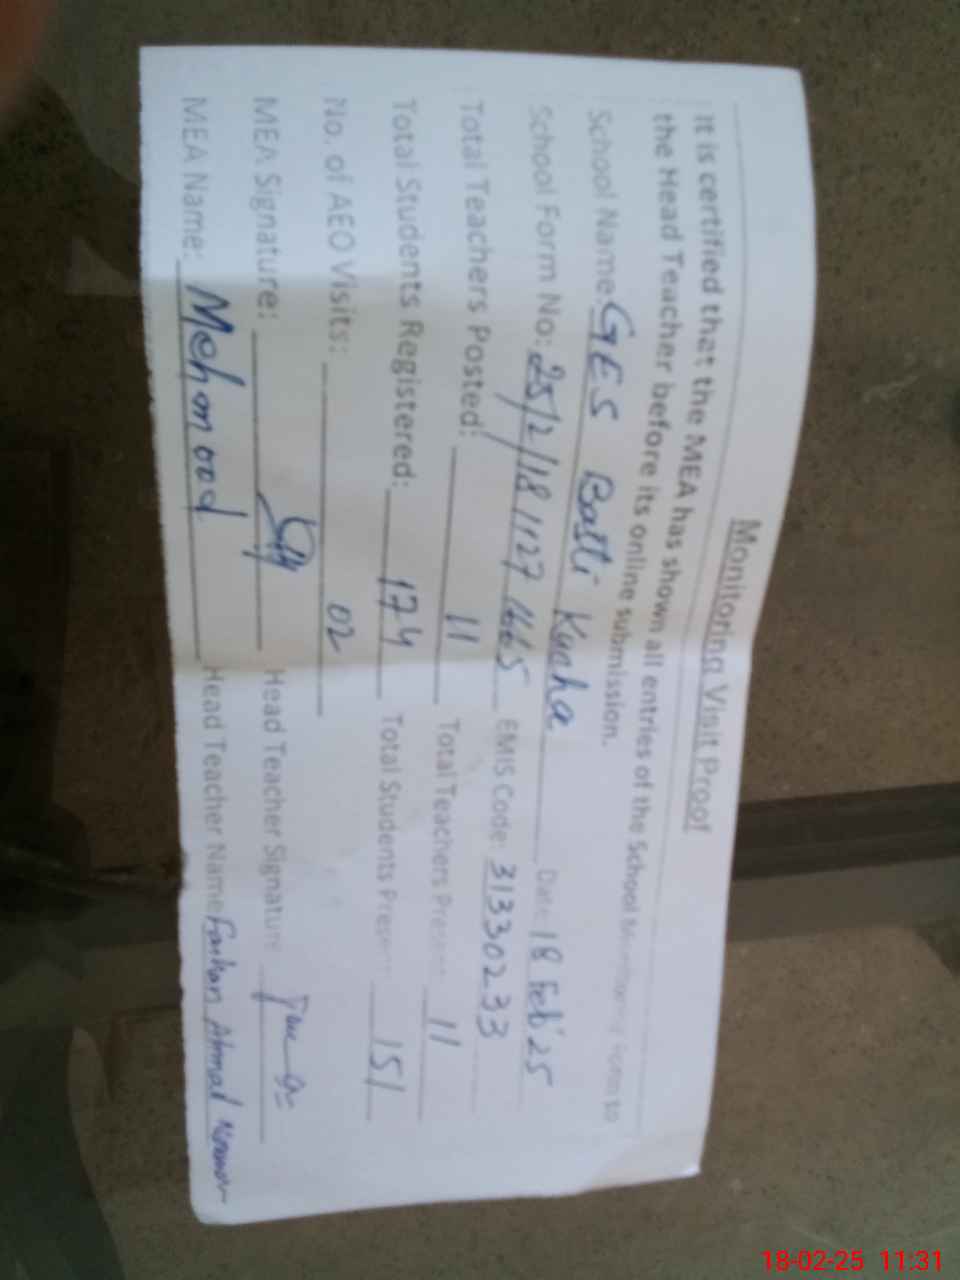 Monitoring Visit Proof
It is certified that the MEA has shown all entries of the School Monitoring Form to
the Head Teacher before its online submission.
School Name: GES Basti Kunha Date: 18 Feb' 25
School Form No: 25/2/18/127 1665 EMIS Code: 31330233
Total Teachers Posted: 11 Total Teachers Present: 11
Total Students Registered: 174 Total Students Present: 151
No. of AEO Visits: 02
MEA Signature: Head Teacher Signature
MEA Name: Mehmood Head Teacher Name Farhan Ahmad
18-02-25 11:31